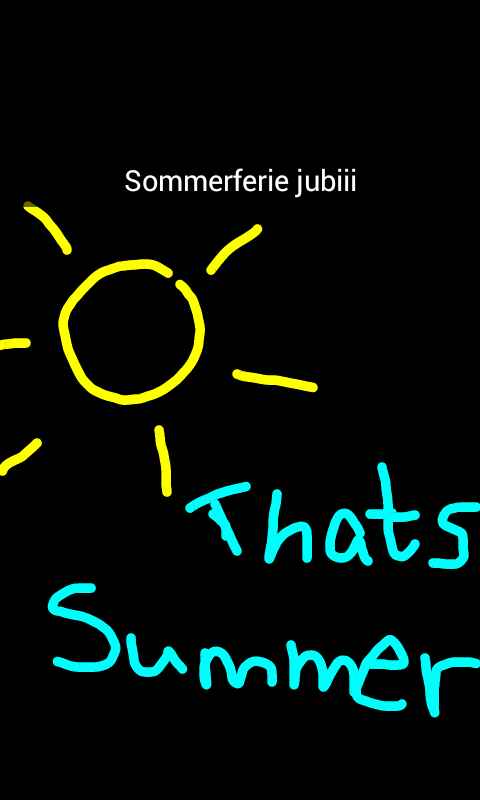 Sommerferie jubiii
Thats
Summer